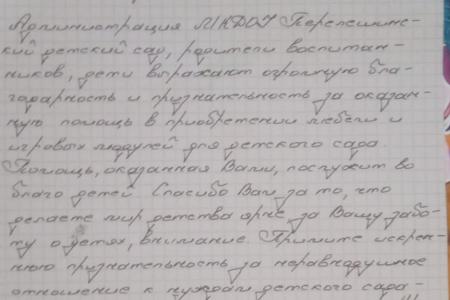 Администрация МКДОУ Перелешин-
ский детский сад, родители воспитан-
ников, дети выражают огромную бла-
годарность и признательность за оказан-
ную помощь в приобретении мебели и
игровых модулей для детского сада.
Помощь, оказанная Вами, послужит во
благо детей. Спасибо Вам за то, что
делаете мир детства ярче, за Вашу забо-
ту о детях, внимание. Примите искрен-
нюю признательность за неравнодушное
отношение к нуждам детского сада